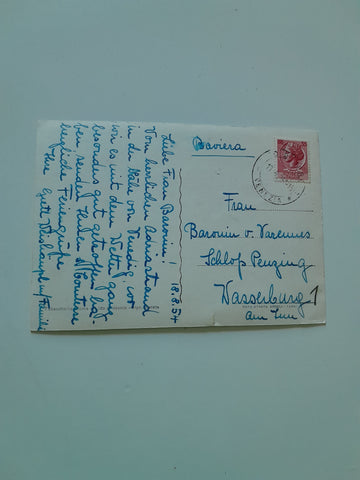 18.8.54
Liebe Frau Baronin!
Vom herrlichen Adriastrand
in der Nähe von Venedig, wo
wir es mit dem Wetter ganz
besonders gut getroffen ha-
ben senden Ihnen
herzliche Feriengrüße
Ihre
Baviera
VENEZIA
Frau
Baronin v. Varennes
Schloß Penzing
Wasserburg
am Inn